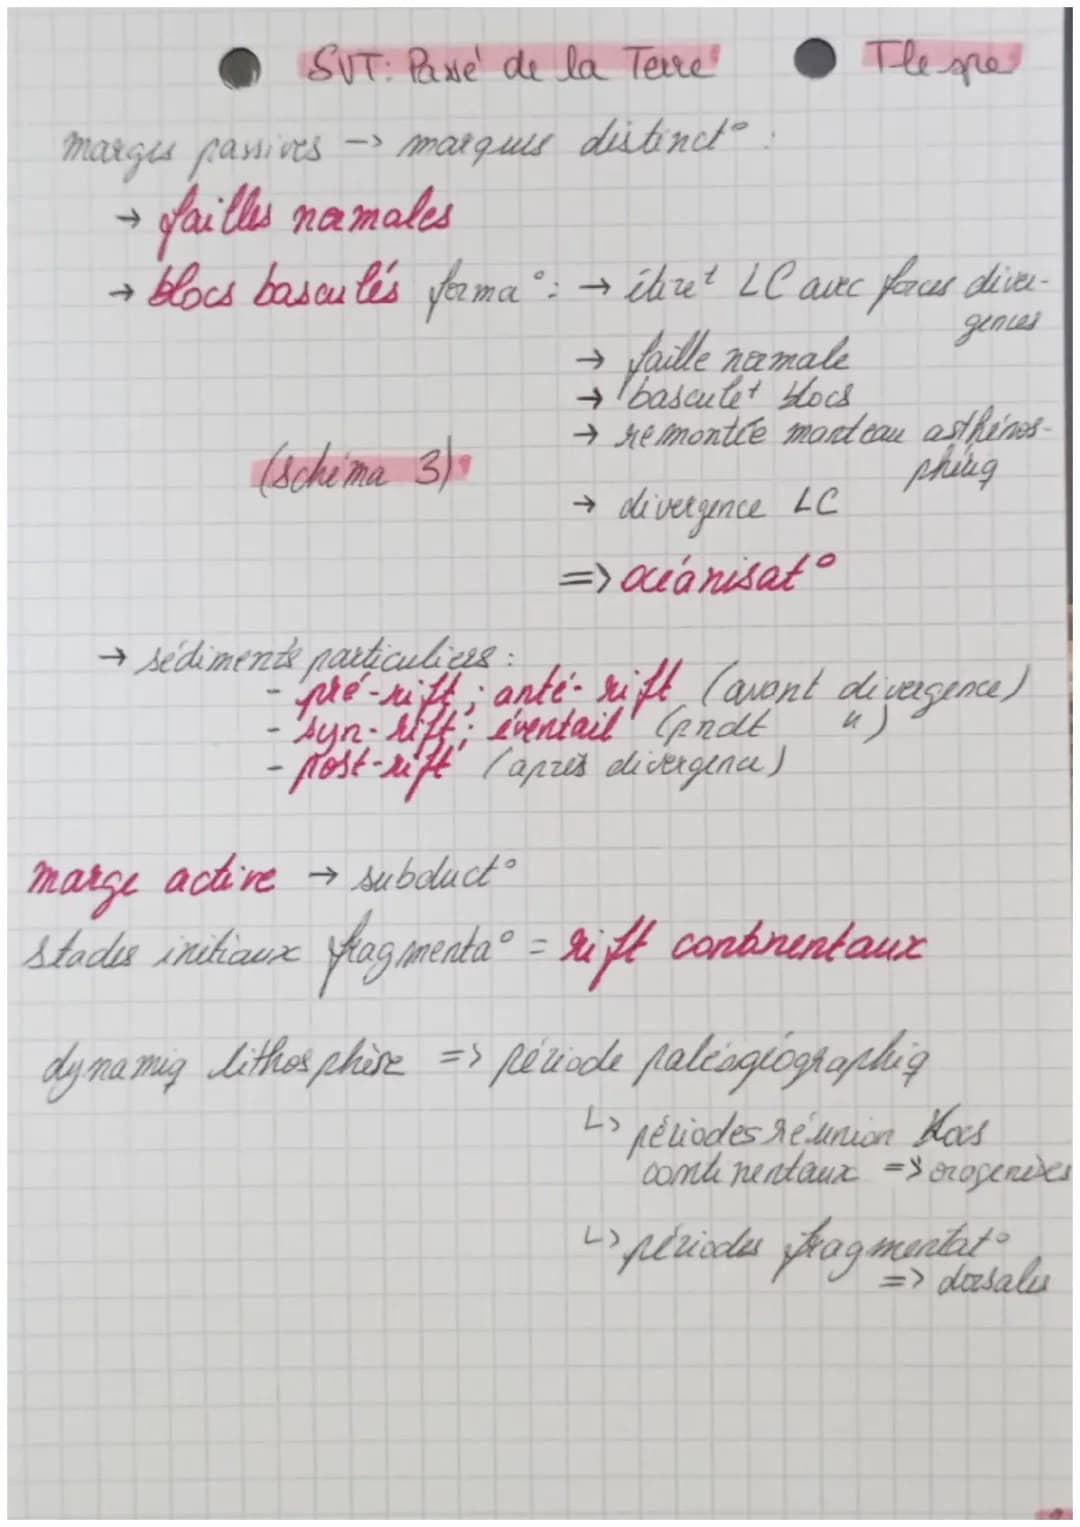 SVT: Passé de la Terre Tle spé
marges passives -> marques distinct° :
→ failles normales
→ blocs basculés forma° : → étiret LC avec forces diver-
gences
→ faille normale
→ basculet blocs
→ remontée manteau asthénos-
phériq
(schéma 3)
→ divergence LC
=> océanisat°
→ sédiments particuliers :
- pré-rift ; anté-rift (avant divergence)
- syn-rift ; éventail (pndt ")
- post-rift (après divergence)
marge active → subduct°
stades initiaux fragmenta° = rift continentaux
dynamiq lithosphère => période paléogéographiq
↳ périodes réunion blocs
continentaux => orogenèses
↳ périodes fragmentat°
=> dorsales